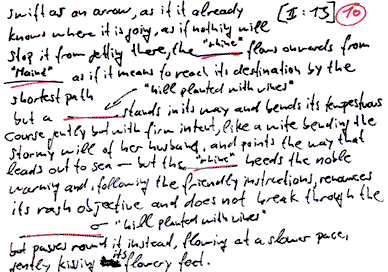 swift as an arrow, as if it already [II : 13] 10
knows where it is going, as if nothing will
stop it from getting there, the "rhine" flows onwards from
"Mainz" as if it means to reach its destination by the
shortest path "hill planted with vines"
but a stands in its way and bends its tempestuous
course gently but with firm intent, like a wife bending the
stormy will of her husband, and points the way that
leads out to sea — but the "rhine" heeds the noble
warning and, following the friendly instructions, renounces
its rash objective and does not break through the
"hill planted with vines"
but passes round it instead, flowing at a slower pace,
gently kissing its flowery feet.